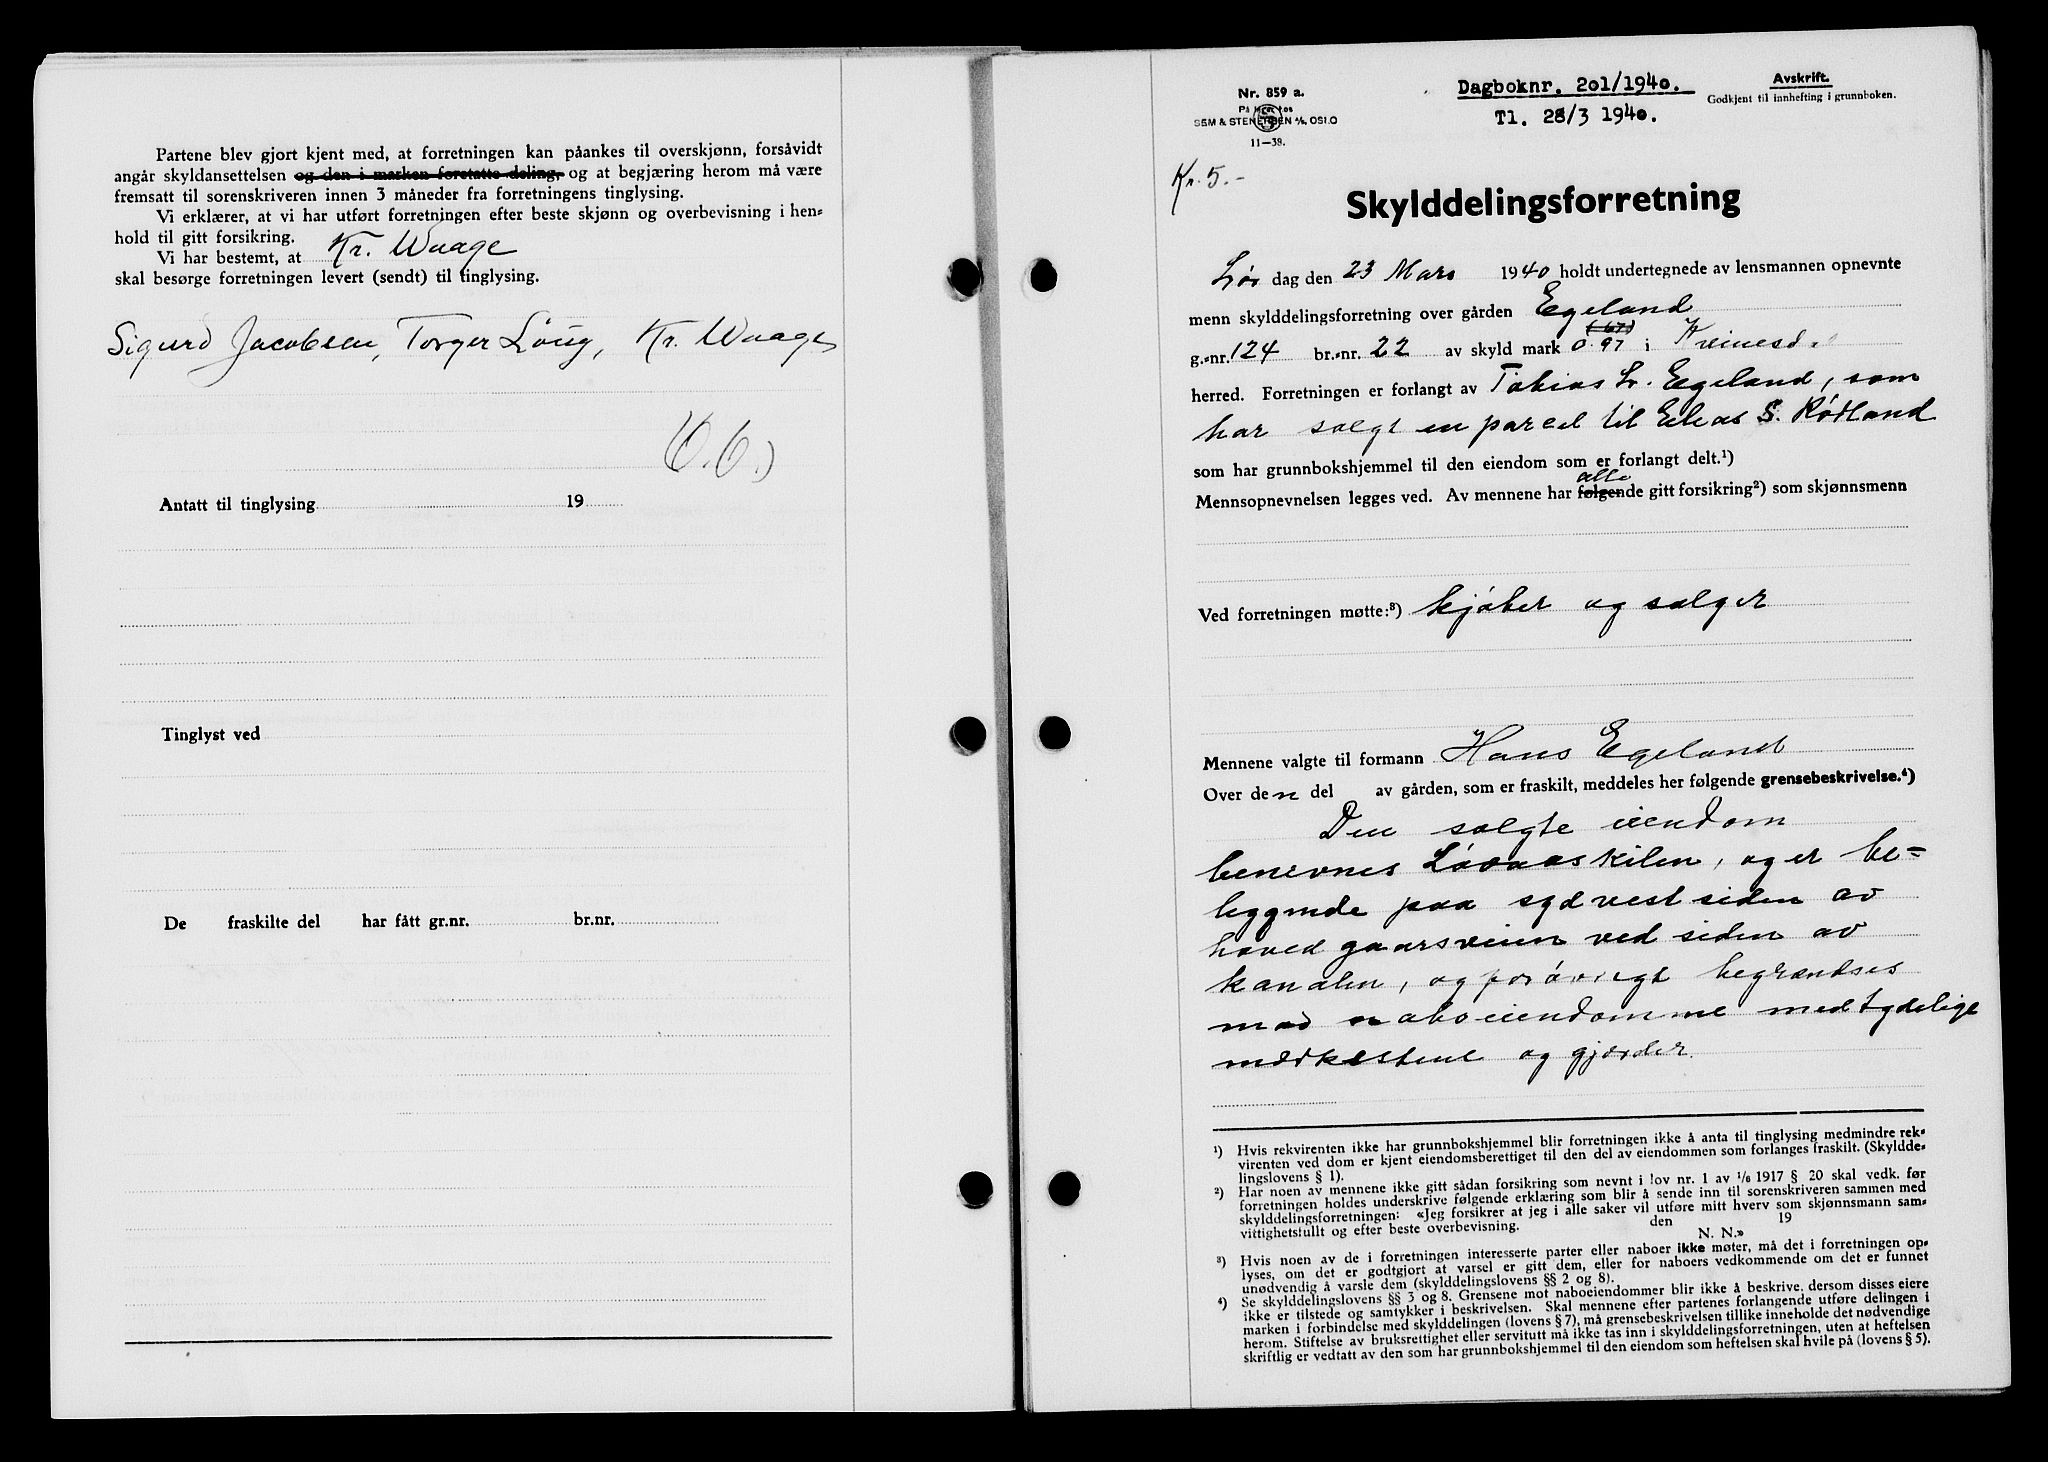 Partene blev gjort kjent med, at forretningen kan påankes til overskjønn, forsåvidt
angår skyldansettelsen og den i marken foretatte deling, og at begjæring herom må være
fremsatt til sorenskriveren innen 3 måneder fra forretningens tinglysing.
Vi erklærer, at vi har utført forretningen efter beste skjønn og overbevisning i hen=
hold til gitt forsikring.
Vi har bestemt, at Kr. Waage
skal besørge forretningen levert (sendt) til tinglysing.
Sigurd Jacobsen, Torger Löyg, Kr. Waage
Antatt til tinglysing 19
Tinglyst ved
De fraskilte del har fått gr.nr. br.nr.
Nr. 859 a.
SEM & STENERSEN A/S, OSLO
11—38.
Dagboknr. 201/1940.
Tl. 28/3 1940.
Avskrift.
Godkjent til innhefting i grunnboken.
Kr. 5.-
Skylddelingsforretning
Lör dag den 23 Mars 1940 holdt undertegnede av lensmannen opnevnte
menn skylddelingsforretning over gården Egeland
g.=nr. 124 br.=nr. 22 av skyld mark 0.97 i Kvinesdal
herred. Forretningen er forlangt av Tobias Lr. Egeland, som
har solgt en parcel til Elias S. Rödland
som har grunnbokshjemmel til den eiendom som er forlangt delt.¹)
alle
Mennsopnevnelsen legges ved. Av mennene har følgende gitt forsikring²) som skjønnsmenn
Ved forretningen møtte:³) kjöber og sælger
Mennene valgte til formann Hans Egeland
Over den del av gården, som er fraskilt, meddeles her følgende grensebeskrivelse.⁴)
Den solgte eiendom
benevnes Lövaaskilen, og er be=
liggende paa sydvestsiden av
hovedgaarsveien ved siden av
kanalen, og forövrigt begrændses
med naboeiendomme med tydelige
merkestene og gjerder.
¹) Hvis rekvirenten ikke har grunnbokshjemmel blir forretningen ikke å anta til tinglysing medmindre rek=
virenten ved dom er kjent eiendomsberettiget til den del av eiendommen som forlanges fraskilt. (Skyldde=
lingslovens § 1).
²) Har noen av mennene ikke gitt sådan forsikring som nevnt i lov nr. 1 av 1/6 1917 § 20 skal vedk. før
forretningen holdes underskrive følgende erklæring som blir å sende inn til sorenskriveren sammen med
skylddelingsforretningen: «Jeg forsikrer at jeg i alle saker vil utføre mitt hverv som skjønnsmann sam=
vittighetsfullt og efter beste overbevisning. den 19
N. N.»
³) Hvis noen av de i forretningen interesserte parter eller naboer ikke møter, må det i forretningen op=
lyses, om det er godtgjort at varsel er gitt dem, eller for naboers vedkommende om det er funnet
unødvendig å varsle dem (skylddelingslovens §§ 2 og 8).
⁴) Se skylddelingslovens §§ 3 og 8. Grensene mot naboeiendommer blir ikke å beskrive, dersom disses eiere
ikke er tilstede og samtykker i beskrivelsen. Skal mennene efter partenes forlangende utføre delingen i
marken i forbindelse med skylddelingen (lovens § 7), må grensebeskrivelsen tillike inneholde det nødvendige
herom. Stiftelse av bruksrettighet eller servitutt må ikke tas inn i skylddelingsforretningen, uten at heftelsen
skriftlig er vedtatt av den som har grunnbokshjemmel til den eiendom som heftelsen skal hvile på (lovens § 5).